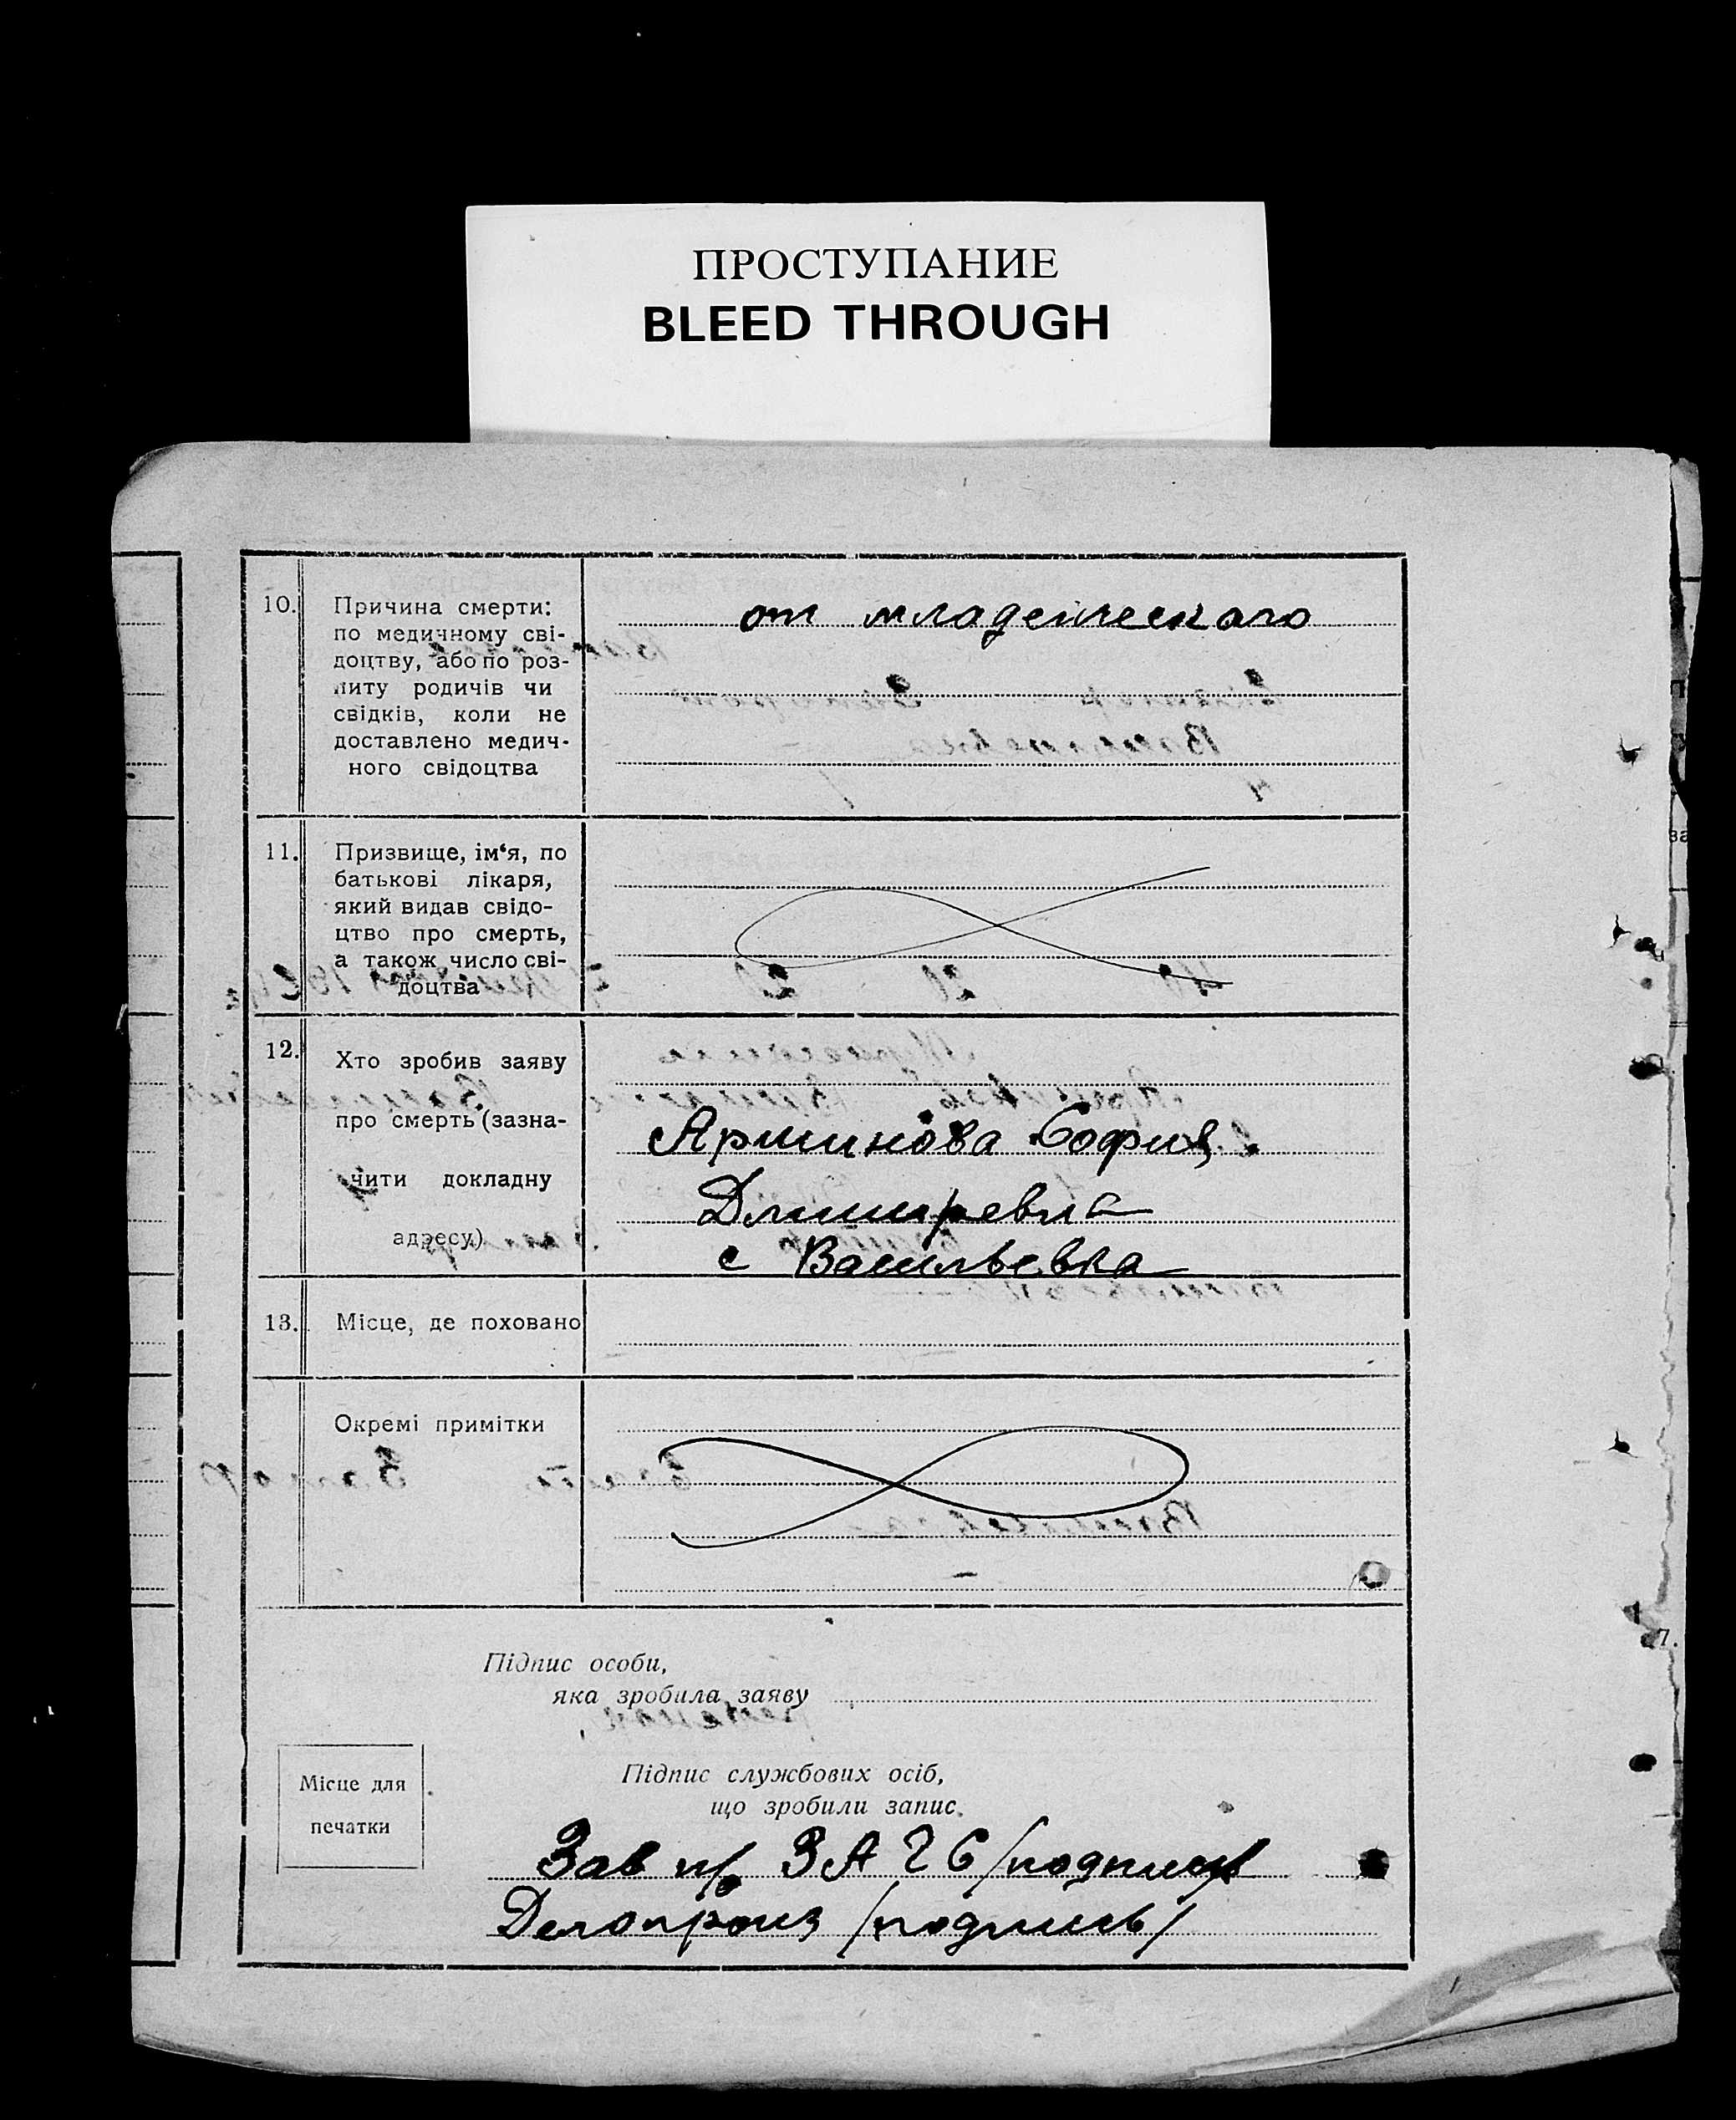 ПРОСТУПАНИЕ
BLEED THROUGH
10. Причина смерти:
по медичному сві-
доцтву, або по роз-
питу родичів чи
свідків, коли не
доставлено медич-
ного свідоцтва
от младенческого
11. Призвище, ім‘я, по
батькові лікаря,
який видав свідо-
цтво про смерть,
а також число сві-
доцтва
12. Хто зробив заяву
про смерть (зазна-
чити докладну
адресу)
Аршинова София
Дмитревна
с Васильевка
13. Місце, де поховано
Окремі примітки
Підпис особи,
яка зробила заяву
Місце для
печатки
Підпис службових осіб,
що зробили запис.
Зав п/р ЗАГС /подпись/
Делопроиз /подпись/
за
7.